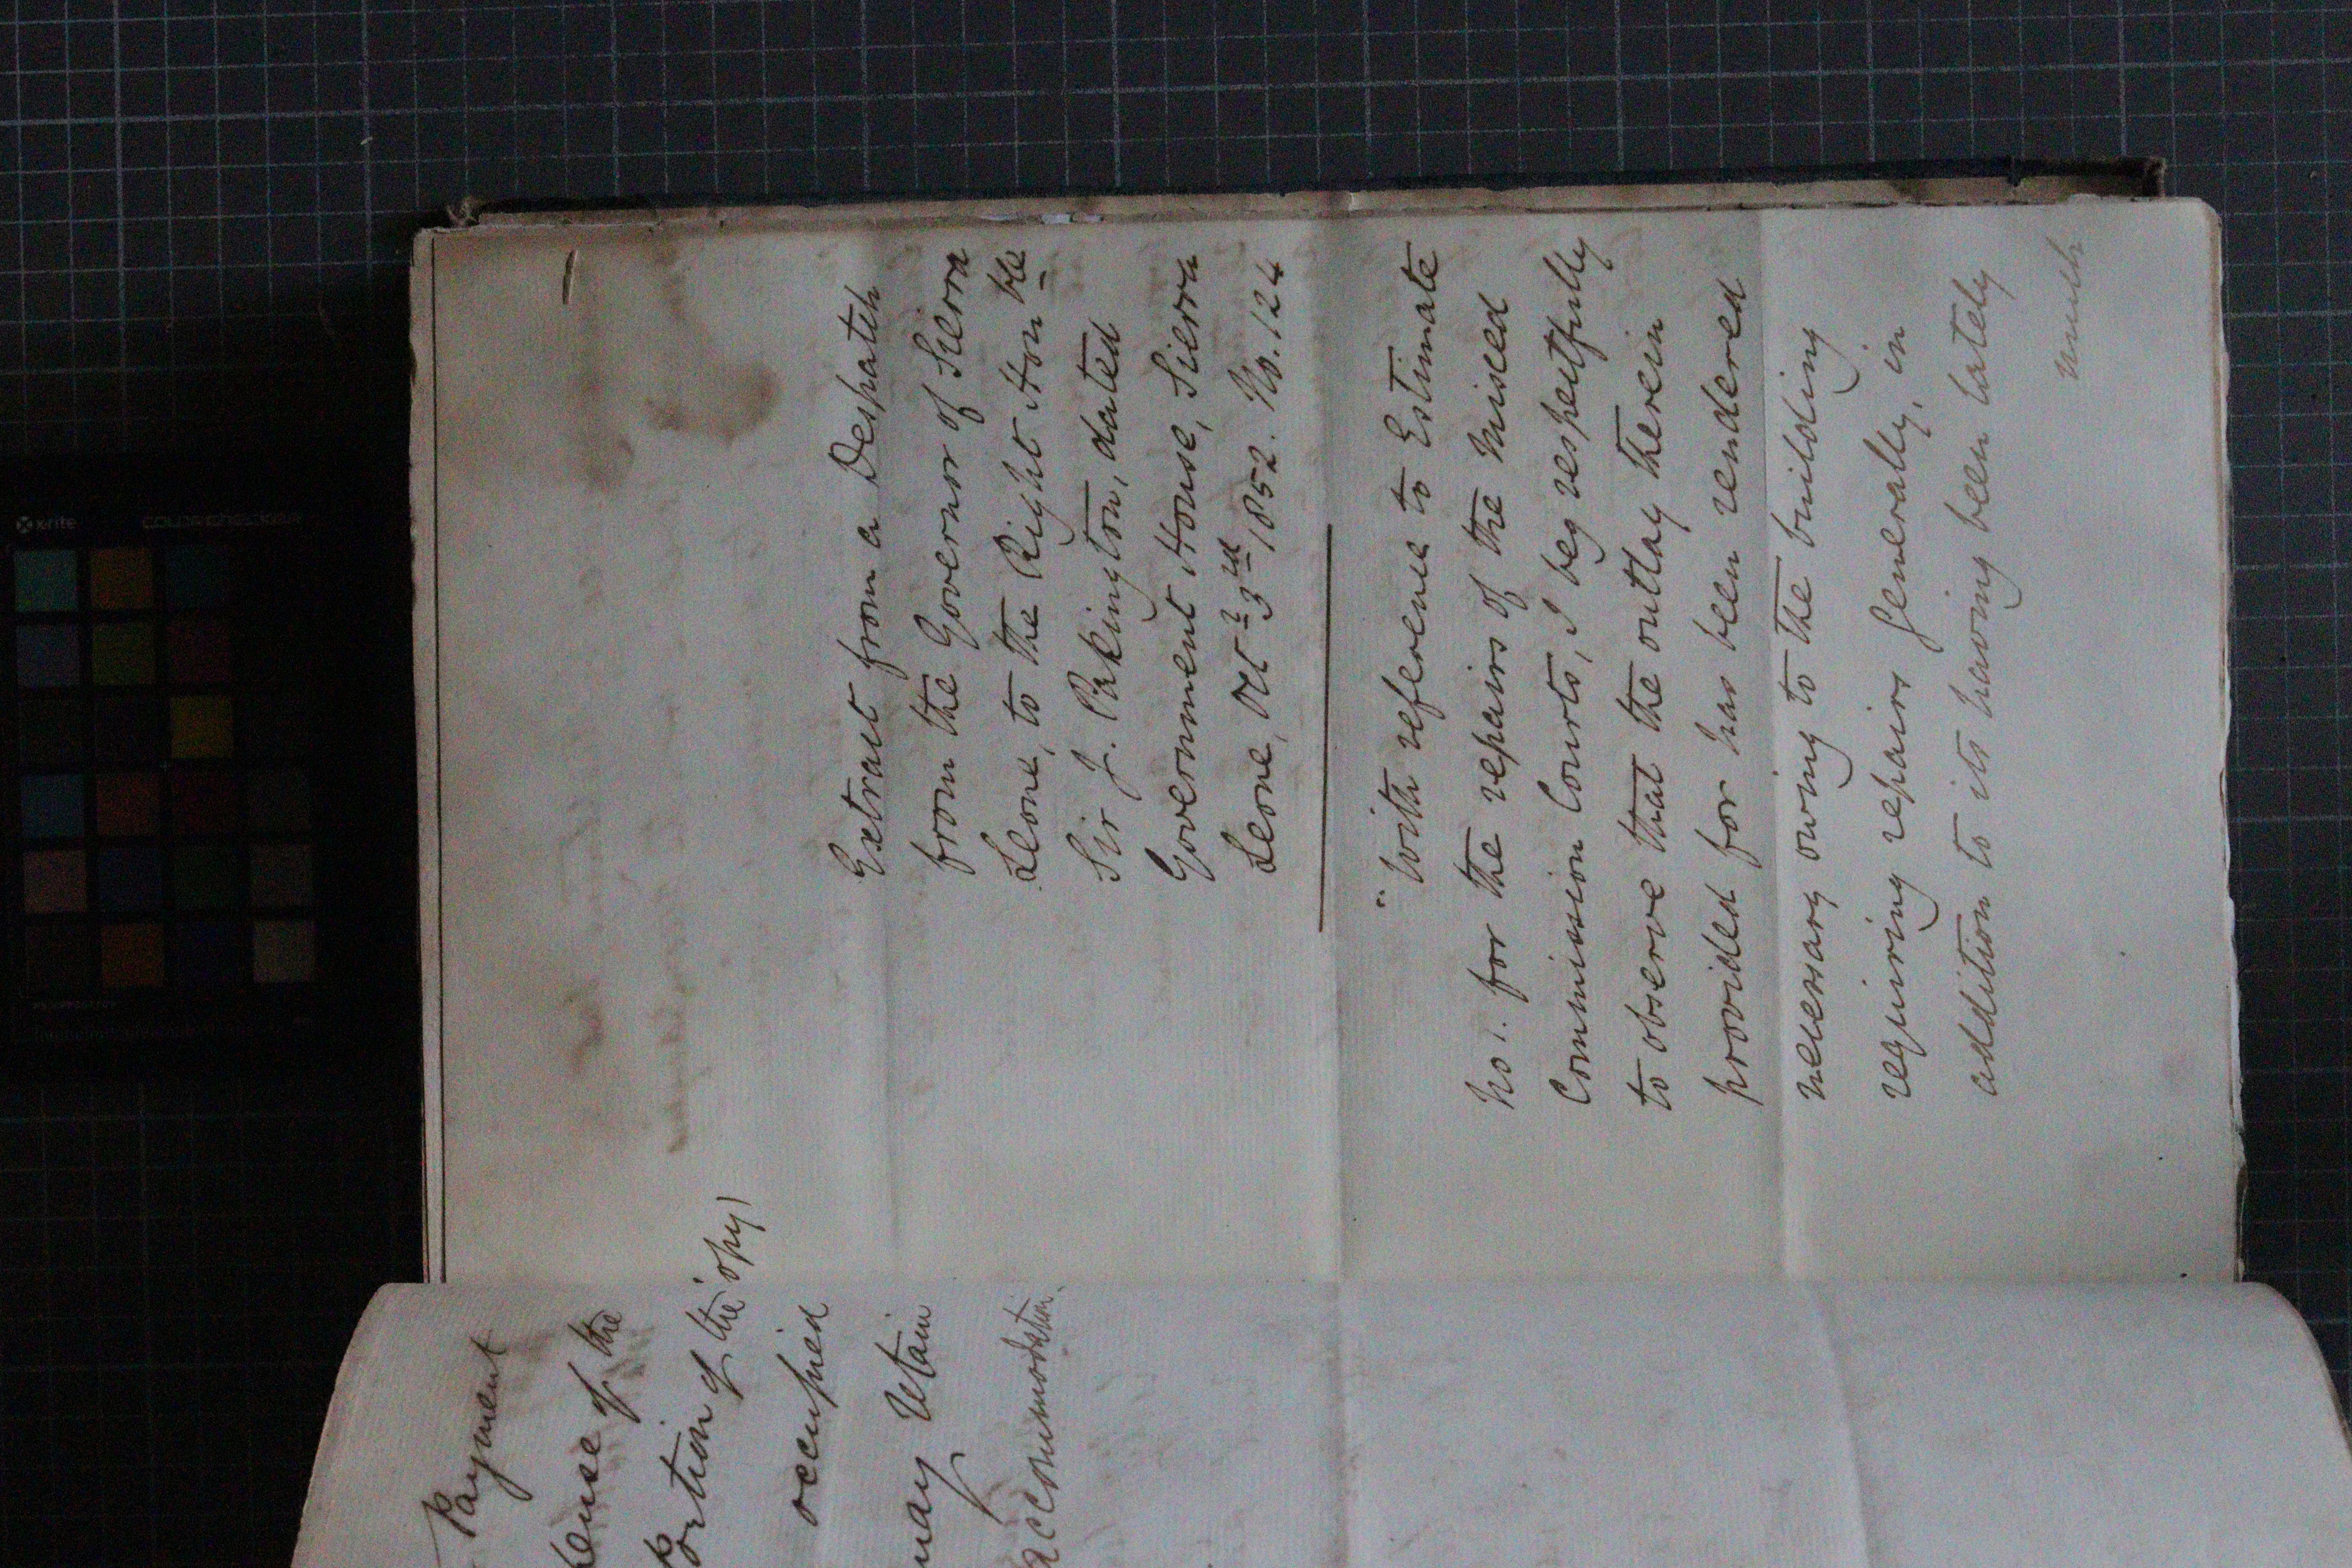 Payment
of the
Portion of the
(copy)
occupied
may retain
accommodation.
Extract from a Despatch
from the Governor of Sierra
Leone, to the Right Hon ble
Sir J. Pakington, dated
Government House, Sierra
Leone, Oct r 3 rd 1852. No. 124
"With reference to Estimate
No 1. for the repairs of the Mixed
Commission Courts, I beg respectfully
to observe that the outlay therein
provided for has been rendered
necessary owing to the building
requiring repairs generally, in
addition to its having been lately
much
x-rite
colorchecker